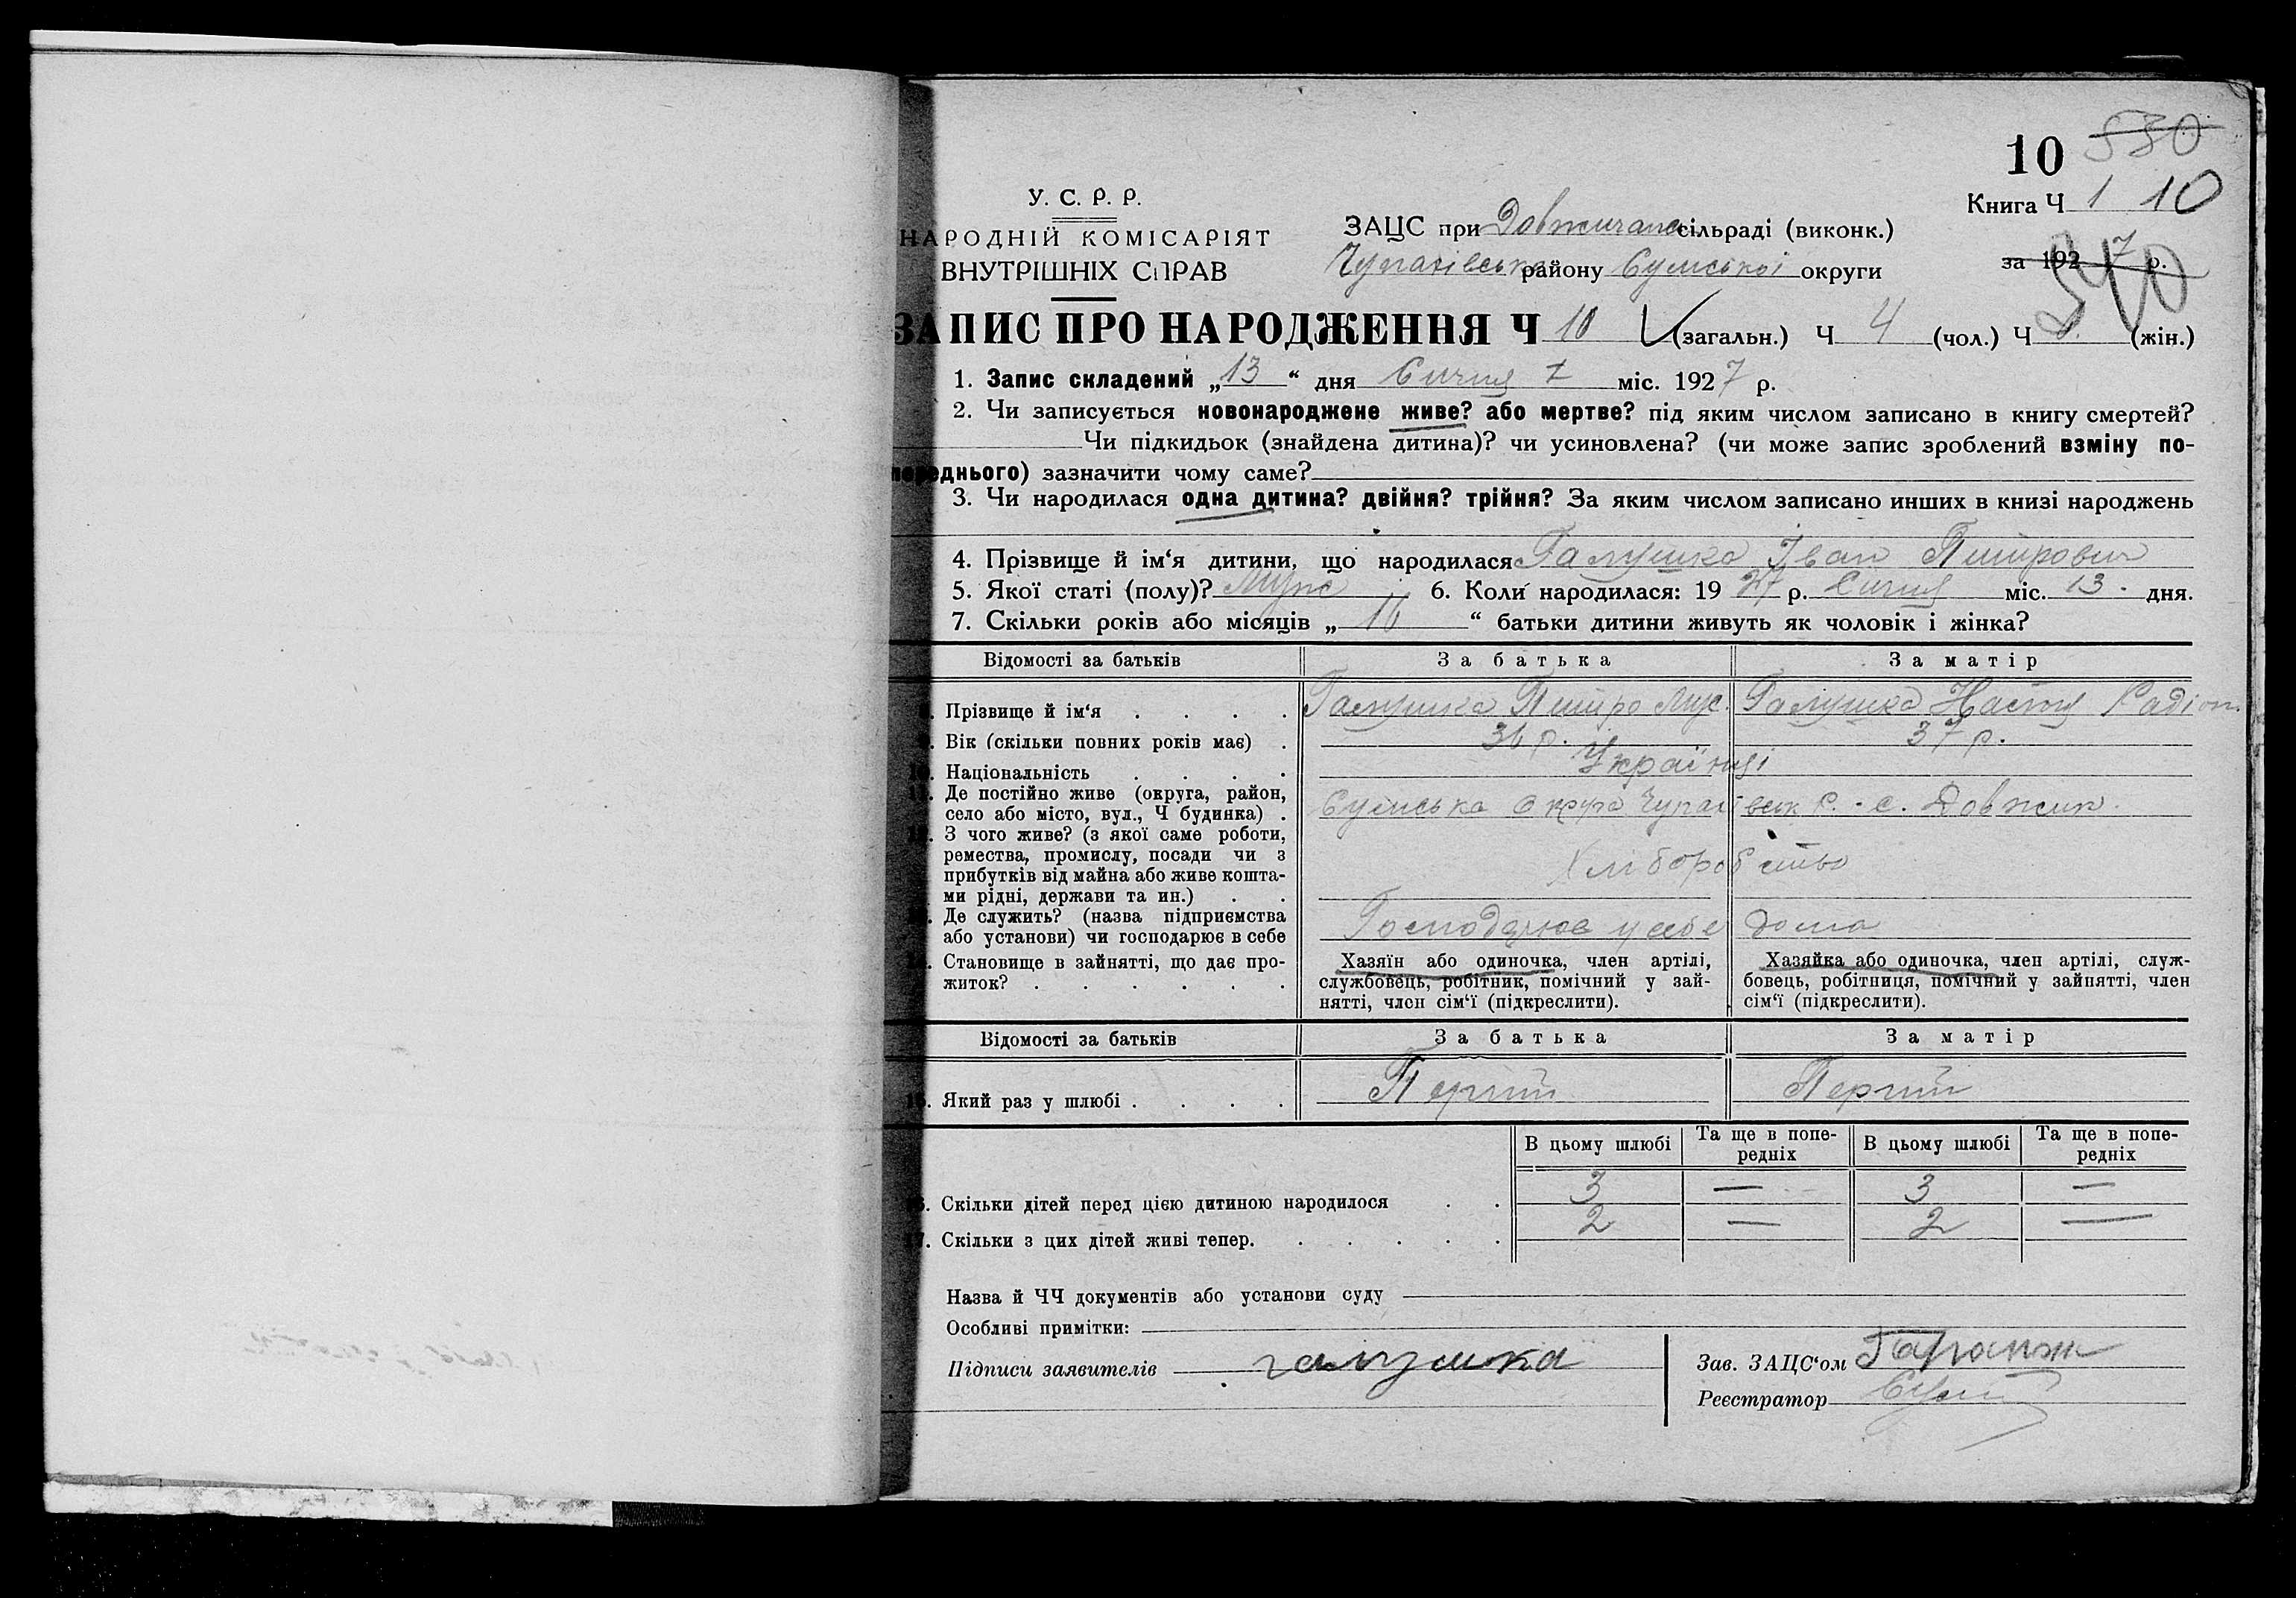 10 530
Книга Ч 1 10
У. С. Р. Р.
НАРОДНІЙ КОМІСАРІЯТ
ВНУТРІШНІХ СПРАВ
ЗАЦС при сільраді (виконк.)
району Сумської округи
за 1927 р.
540
ЗАПИС ПРО НАРОДЖЕННЯ Ч 10 (загальн.) Ч 4 (чол.) Ч (жін.)
1. Запис складений „13“ дня Січня міс. 1927 р.
2. Чи записується новонароджене живе? або мертве? під яким числом записано в книгу смертей?
Чи підкидьок (знайдена дитина)? чи усиновлена? (чи може запис зроблений взміну по-
переднього) зазначити чому саме?
3. Чи народилася одна дитина? двійня? трійня? За яким числом записано инших в книзі народжень
4. Прізвище й ім‘я дитини, що народилася Галушка Іван Питрович
5. Якої статі (полу)? Муж 6. Коли народилася: 1927 р. Січня міс. 13 дня.
7. Скільки років або місяців „16“ батьки дитини живуть як чоловік і жінка?
Відомості за батьків За батька За матір
8. Прізвище й ім‘я Галушка Питро Мус. Галушка Настя Радіон.
9. Вік (скільки повних років має) 36 р. 37 р.
10. Національність Українці
11. Де постійно живе (округа, район,
село або місто, вул., Ч будинка) Сумська округа Чупахівськ р. с. Довжик.
12. З чого живе? (з якої саме роботи,
ремества, промислу, посади чи з
прибутків від майна або живе кошта-
ми рідні, держави та ин.) Хліборобство
13. Де служить? (назва підприємства
або установи) чи господарює в себе Господарює у себе дома
14. Становище в зайнятті, що дає про-
житок?
Хазяїн або одиночка, член артілі,
службовець, робітник, помічний у зай-
нятті, член сім‘ї (підкреслити).
Хазяйка або одиночка, член артілі, служ-
бовець, робітниця, помічний у зайнятті, член
сім‘ї (підкреслити).
Відомості за батьків За батька За матір
15. Який раз у шлюбі Перший Перший
В цьому шлюбі Та ще в попе-
редніх В цьому шлюбі Та ще в попе-
редніх
16. Скільки дітей перед цією дитиною народилося 3 — 3 —
17. Скільки з цих дітей живі тепер. 2 — 2 —
Назва й ЧЧ документів або установи суду
Особливі примітки:
Підписи заявителів галушка
Зав. ЗАЦС‘ом
Реєстратор